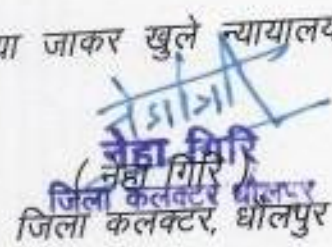 या जाकर खुले न्यायालय
नेहा गिरि
( नेहा गिरि )
जिला कलेक्टर धौलपुर
जिला कलक्टर, धौलपुर